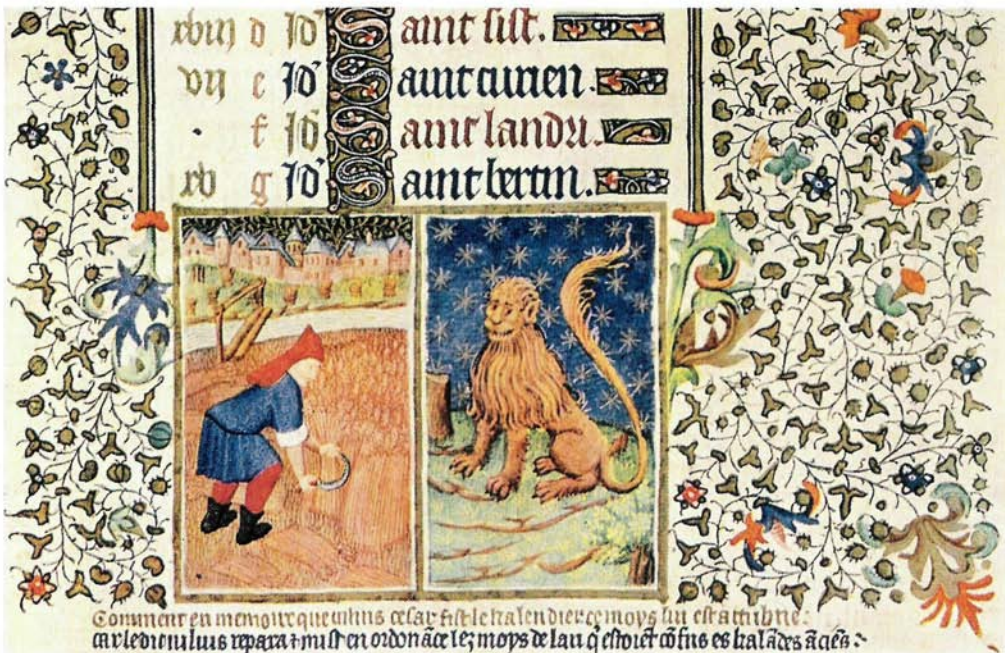 xviij d Id Saint sist.
vij e Id Saint turien.
. f Id Saint landri.
xv g Id Saint bertin.
Comment en memoire que iulius cesar fist le kalendier ce moys lui est attribue:
car le dit iulius repara ⁊ mist en ordonāce lez moys de lan q̄ estoiēt cōfus es kalādes āciēs: